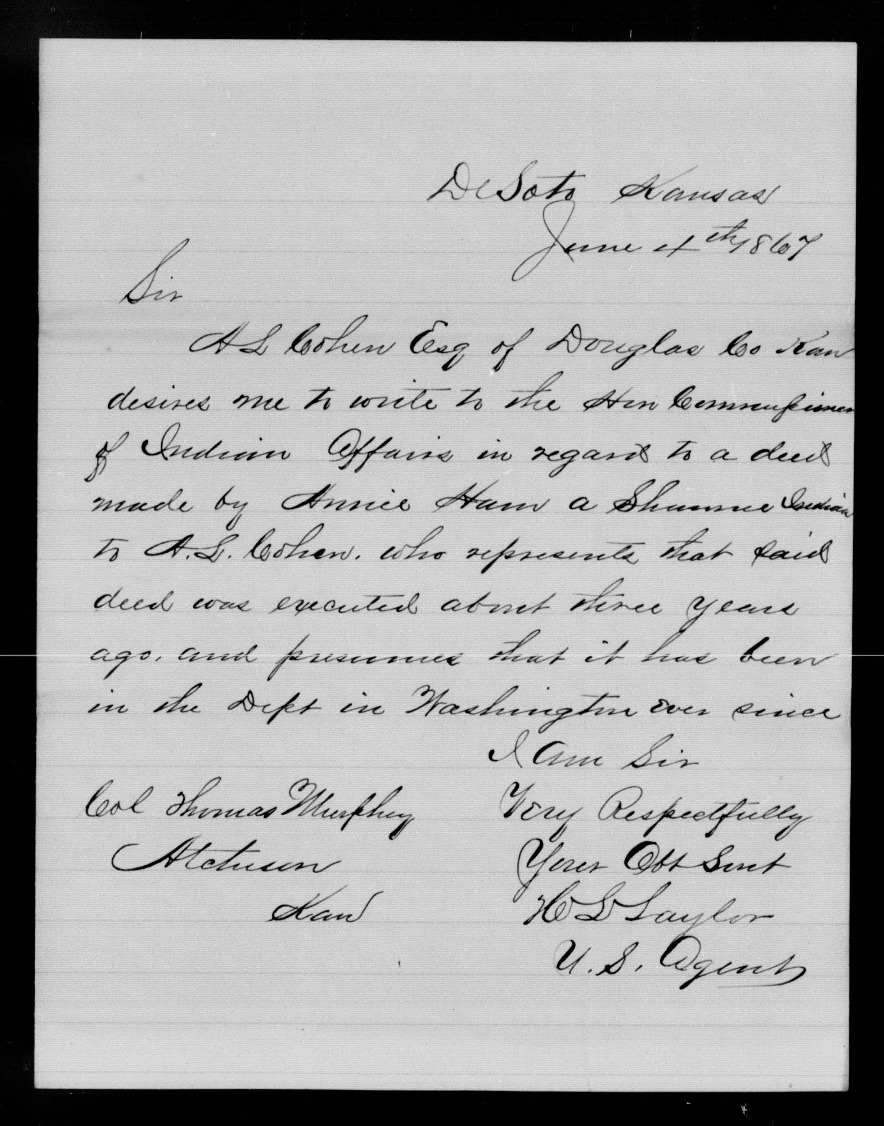 DeSoto Kansas
June 4th 1867
Sir
A L Cohen Esq of Douglas Co Kan
desires me to write to the Hon Commissioner
of Indian Affairs in regard to a deed
made by Annie Ham a Shawnee Indian
to A. L. Cohen. who represents that said
deed was executed about three years
ago. and presumes that it has been
in the Dept in Washington ever since
I Am Sir
Very Respectfully
Your Obt Servt
H L Taylor
U. S. Agent
Col Thomas Murphey
Atchison
Kan